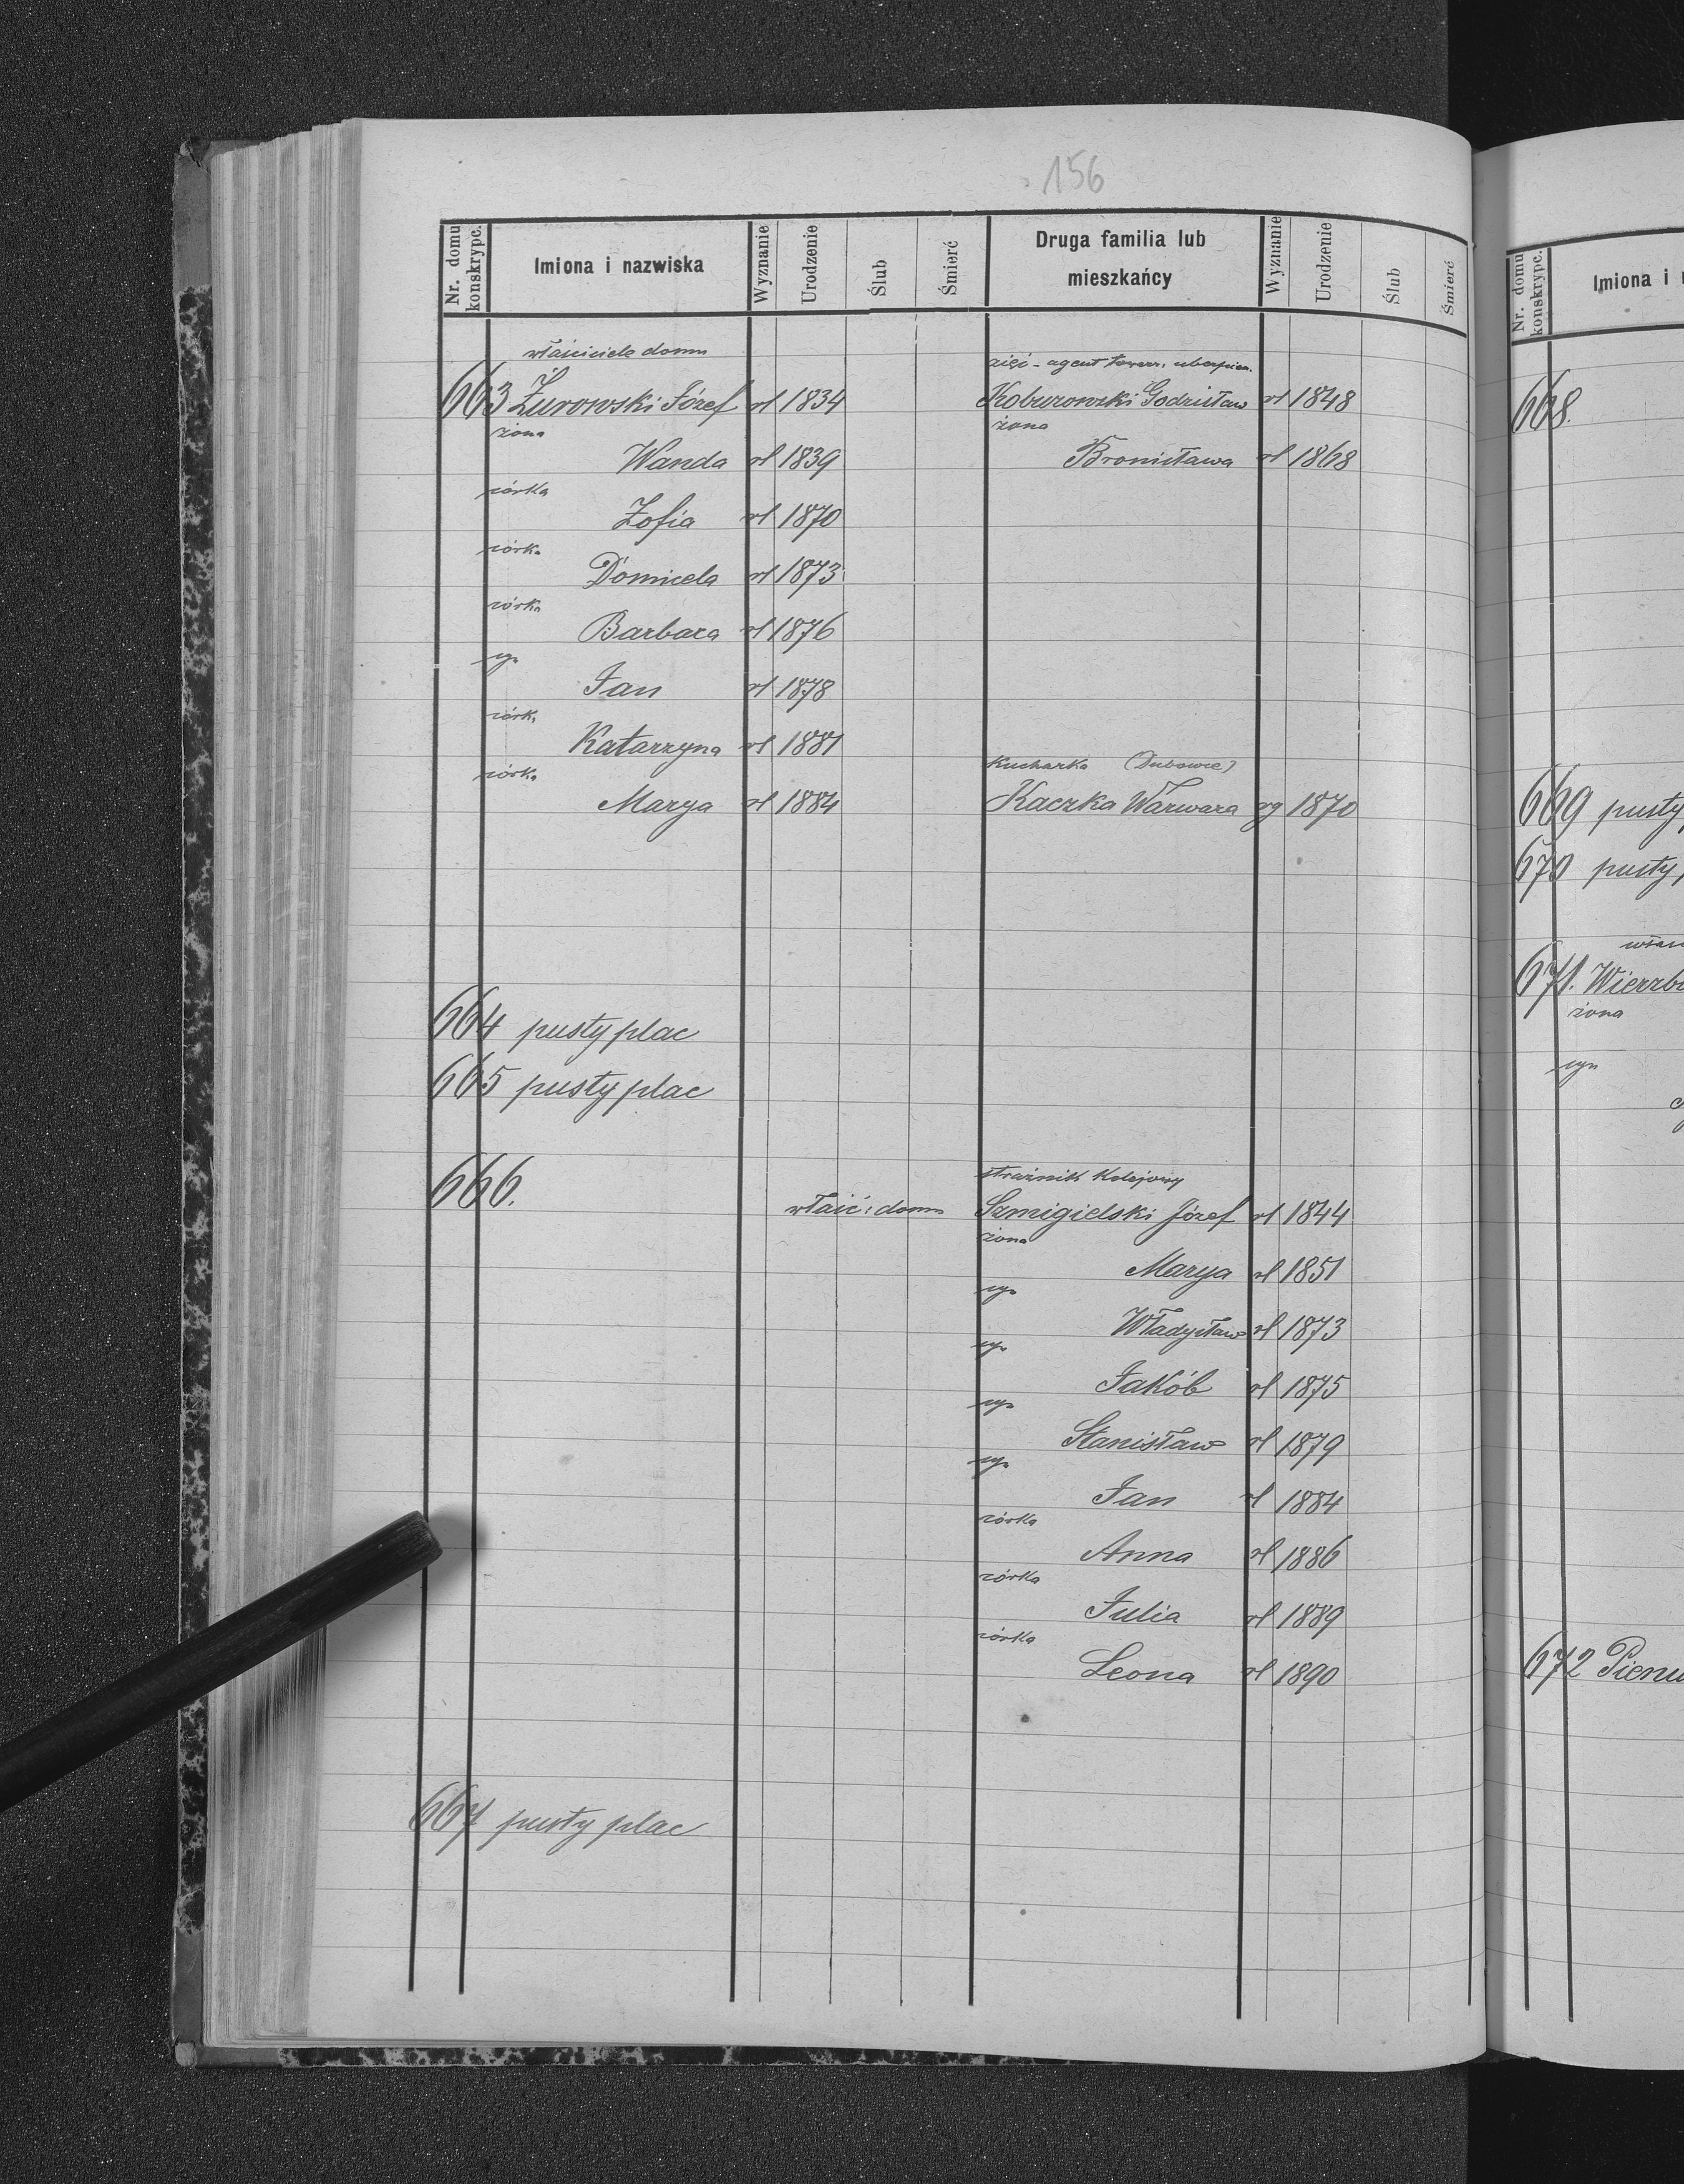 156
Nr. domu konskrypc. Imiona i nazwiska Wyznanie Urodzenie Ślub Śmierć Druga familia lub mieszkańcy Wyznanie Urodzenie Ślub Śmierć
właściciele domu zięć - agent towarz.
663 Żurowski Józef rł 1834 Koburowski Godzisław rł 1848
żona żona
Wanda rł 1839 Bronisława rł 1868
córka
Zofia rł 1870
córka
Domicela rł 1873
córka
Barbara rł 1876
syn
Jan rł 1878
córk.
Katarzyna rł 1881
córka kucharka (Dubowce)
Marya rł 1884 Kaczka Warwara rg 1870
664 pusty plac
665 pusty plac
strażnik kolejowy
666. właść: domu Szmigielski Józef rł 1844
żona
Marya rł 1851
syn
Władysław rł 1873
syn
Jakób rł 1875
syn
Stanisław rł 1879
syn
Jan rł 1884
córka
Anna rł 1886
córka
Julia rł 1889
córka
Leona rł 1890
667 pusty plac
Nr. domu konskrypc. Imiona i
668.
669 pusty
670 pusty
671. Wierzb
żona
syn
672 Pien